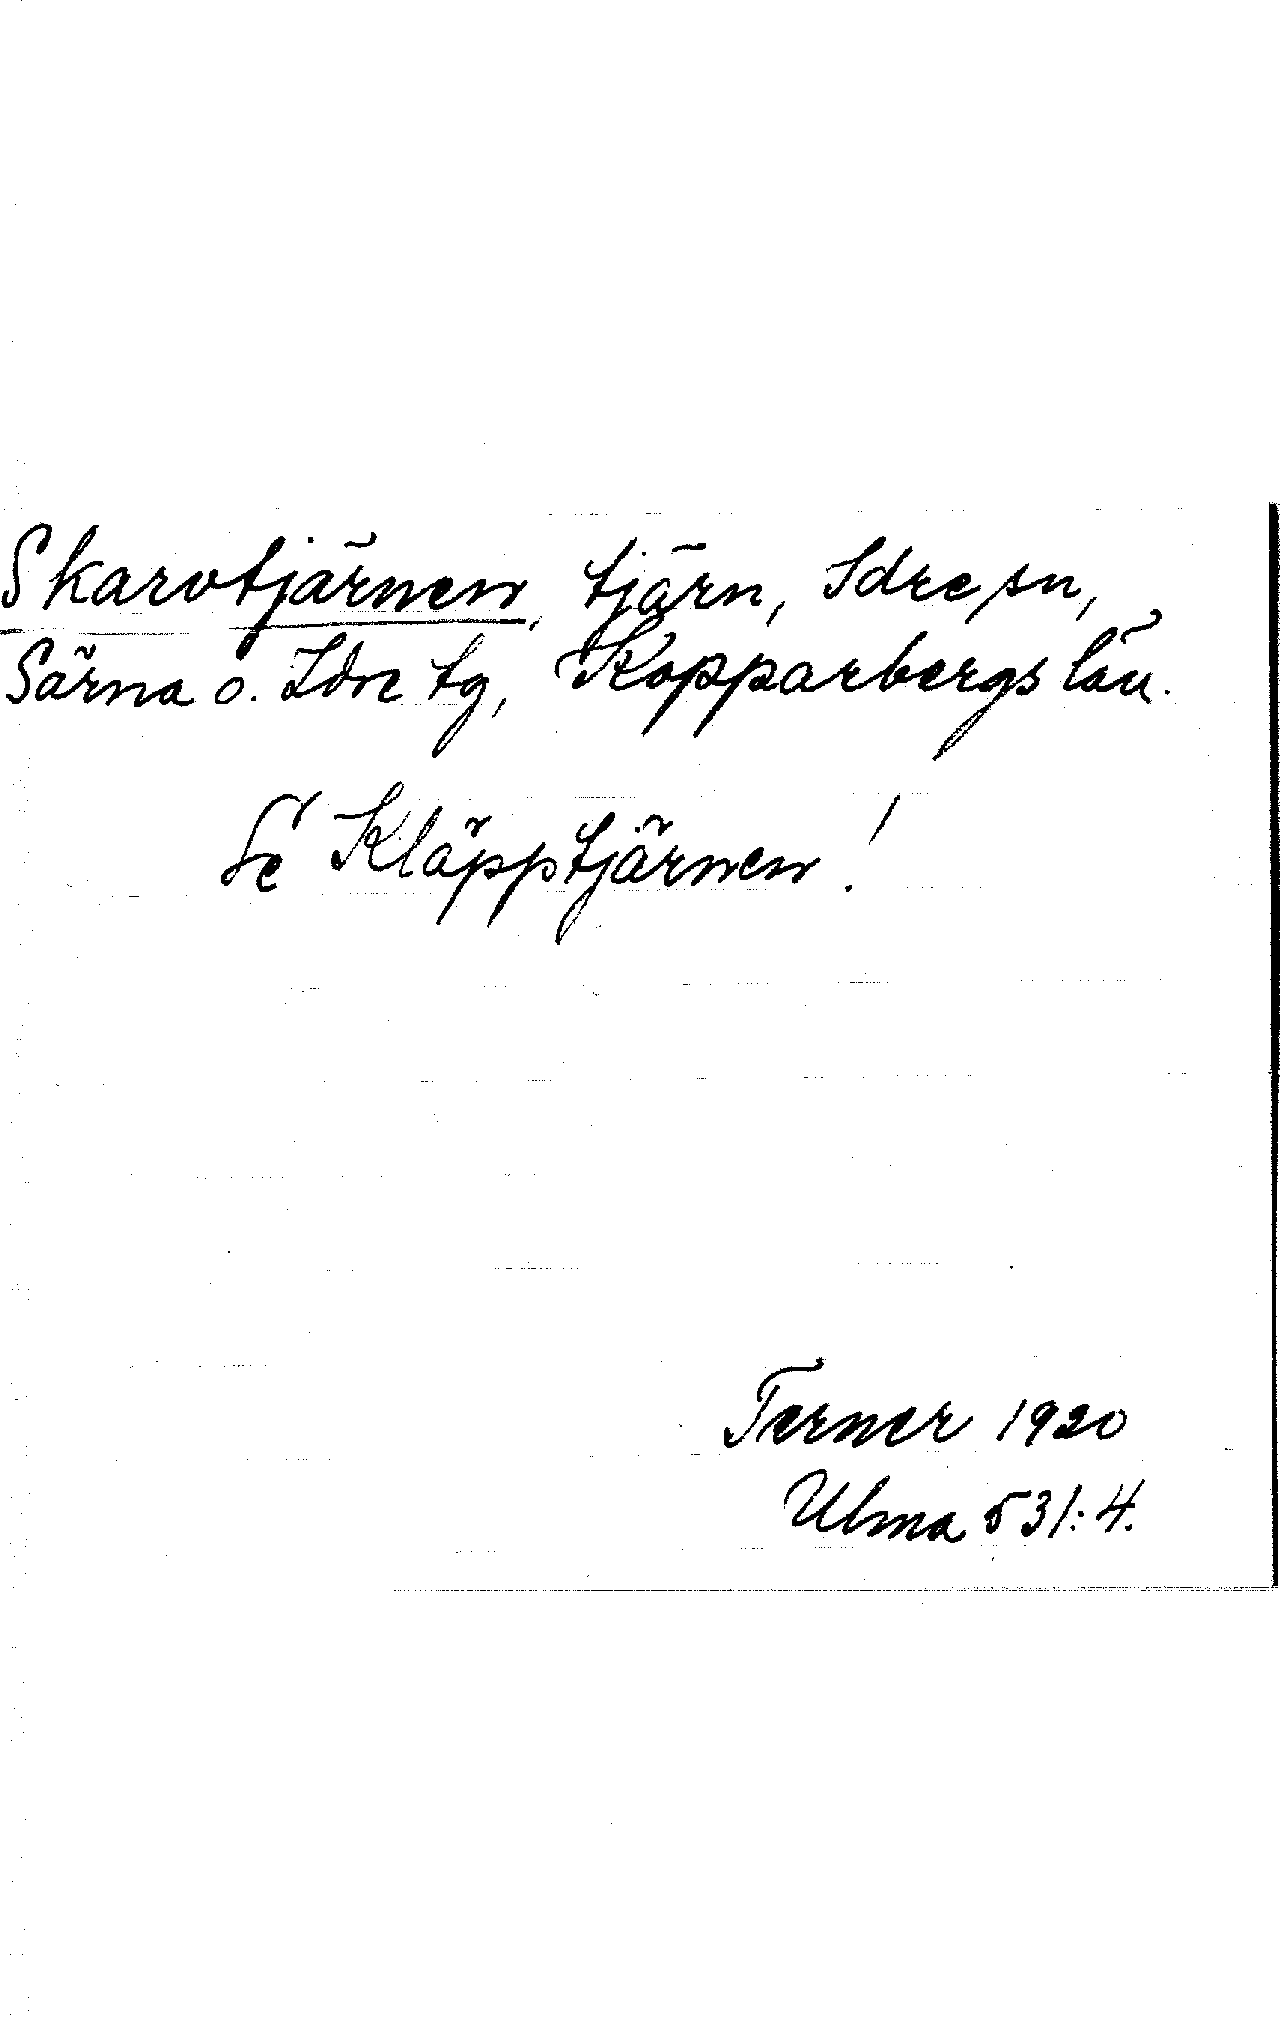 Skarvtjärnen, tjärn, Idre sn,
Särna o. Idre tg, Kopparbergs län.
Se Kläpptjärnen!
Terner 1920
Ulma 531:4.